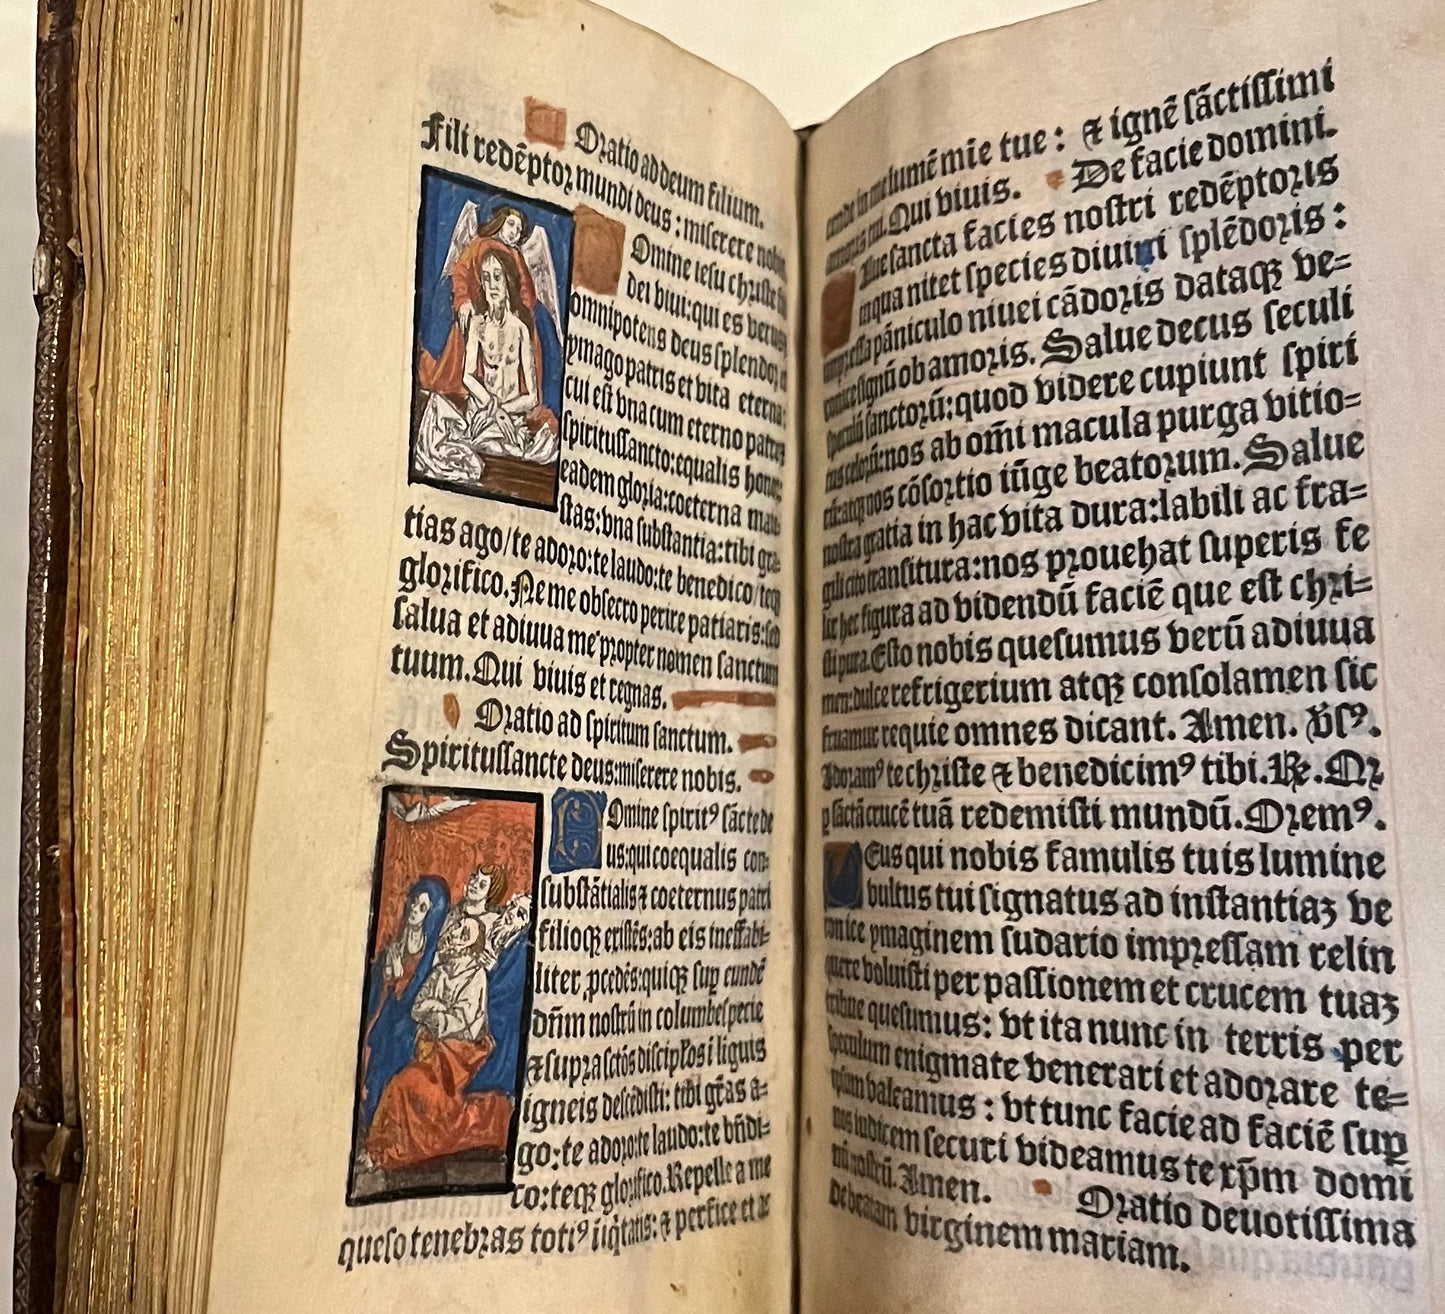 Oratio ad deum filium.
Fili redẽptoꝛ mundi deus : miserere nobis
Omine iesu christe fili
dei viui:qui es verus ⁊
omnipotens deus splendoꝛ ⁊
ymago patris et vita eterna:
cui est vna cum eterno patre ⁊
spiritussancto:equalis honoꝛ
eadem gloꝛia:coeterna maie
stas:vna substantia:tibi gra
tias ago/te adoꝛo:te laudo:te benedico/teqꝫ
gloꝛifico. Ne me obsecro perire patiaris:sed
salua et adiuua me pꝛopter nomen sanctum
tuum. Qui viuis et regnas.
Oratio ad spiritum sanctum.
Spiritussancte deus:miserere nobis.
Omine spiritꝰ sãcte de
us:qui coequalis con
substãtialis ⁊ coeternus patri
filioqꝫ existẽs:ab eis ineffabi=
liter ꝓcedẽs:quiqꝫ suꝑ eundẽ
dñm nostrũ in columbe specie
⁊ supꝛa sctõs discipłos i liguis
igneis descẽdisti: tibi grãs a=
go:te adoꝛo:te laudo:te bñdi=
co:teqꝫ gloꝛifico. Repelle a me
queso tenebꝛas totiꝰ iiq̃tatis: ⁊ perfice et ac
in me lumẽ mie tue : ⁊ ignẽ sãctissimi
Qui viuis. De facie domini.
alue sancta facies nostri redẽptoꝛis
in qua nitet species diuini splẽdoꝛis :
impꝛessa pãniculo niuei cãdoꝛis dataqꝫ ve=
ronice signũ ob amoꝛis. Salue decus seculi
speculũ sanctoꝛũ:quod videre cupiunt spiri
tus celoꝛũ:nos ab om̃i macula purga vitio=
rũ:atqꝫ nos cõsoꝛtio iũge beatoꝛum. Salue
nostra gratia in hac vita dura:labili ac fra=
gili cito transitura:nos pꝛouehat superis fe
lix hec figura ad videndũ faciẽ que est chꝛi=
sti pura. Esto nobis quesumus verũ adiuua
men:dulce refrigerium atqꝫ consolamen sic
fruamur requie omnes dicant. Amen. Vſꝰ.
Adoꝛamꝰ te chꝛiste ⁊ benedicimꝰ tibi. ℟. Qꝛ
ꝑ sãctã crucẽ tuã redemisti mundũ. Oꝛemꝰ.
Eus qui nobis famulis tuis lumine
vultus tui signatus ad instantiaꝫ ve
ronice ymaginem sudario impꝛessam relin
quere voluisti per passionem et crucem tuaꝫ
tribue quesumus: vt ita nunc in terris per
speculum enigmate venerari et adoꝛare te=
ipsum valeamus : vt tunc facie ad faciẽ suꝑ
nos iudicem securi videamus te xp̃m domi
nũ nostrũ. Amen. Oꝛatio deuotissima
de beatam virginem mariam.